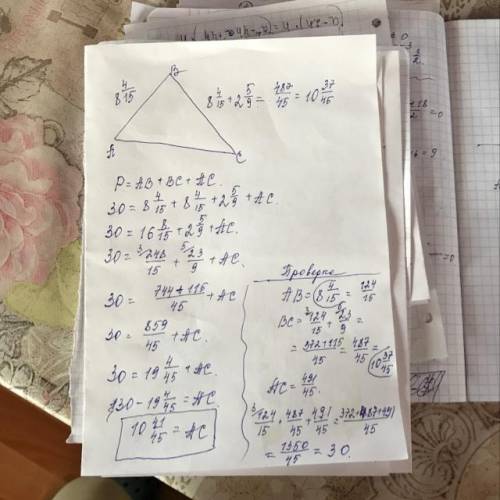 B
8 4/15
8 4/15 + 2 5/9 = 487/45 = 10 37/45
A
C
P = AB + BC + AC.
30 = 8 4/15 + 8 4/15 + 2 5/9 + AC.
30 = 16 8/15 + 2 5/9 + AC.
30 = ³248/15 + ⁵23/9 + AC.
30 = 744+115/45 + AC
30 = 859/45 + AC.
30 = 19 4/45 + AC.
30 - 19 4/45 = AC
10 41/45 = AC
Проверка
AB = 8 4/15 = 124/15
BC = ³124/15 + ⁵23/9 =
= 372+115/45 = 487/45 =
10 37/45
AC = 491/45.
³124/15 + 487/45 + 491/45 = 372+487+491/45
= 1350/45 = 30.